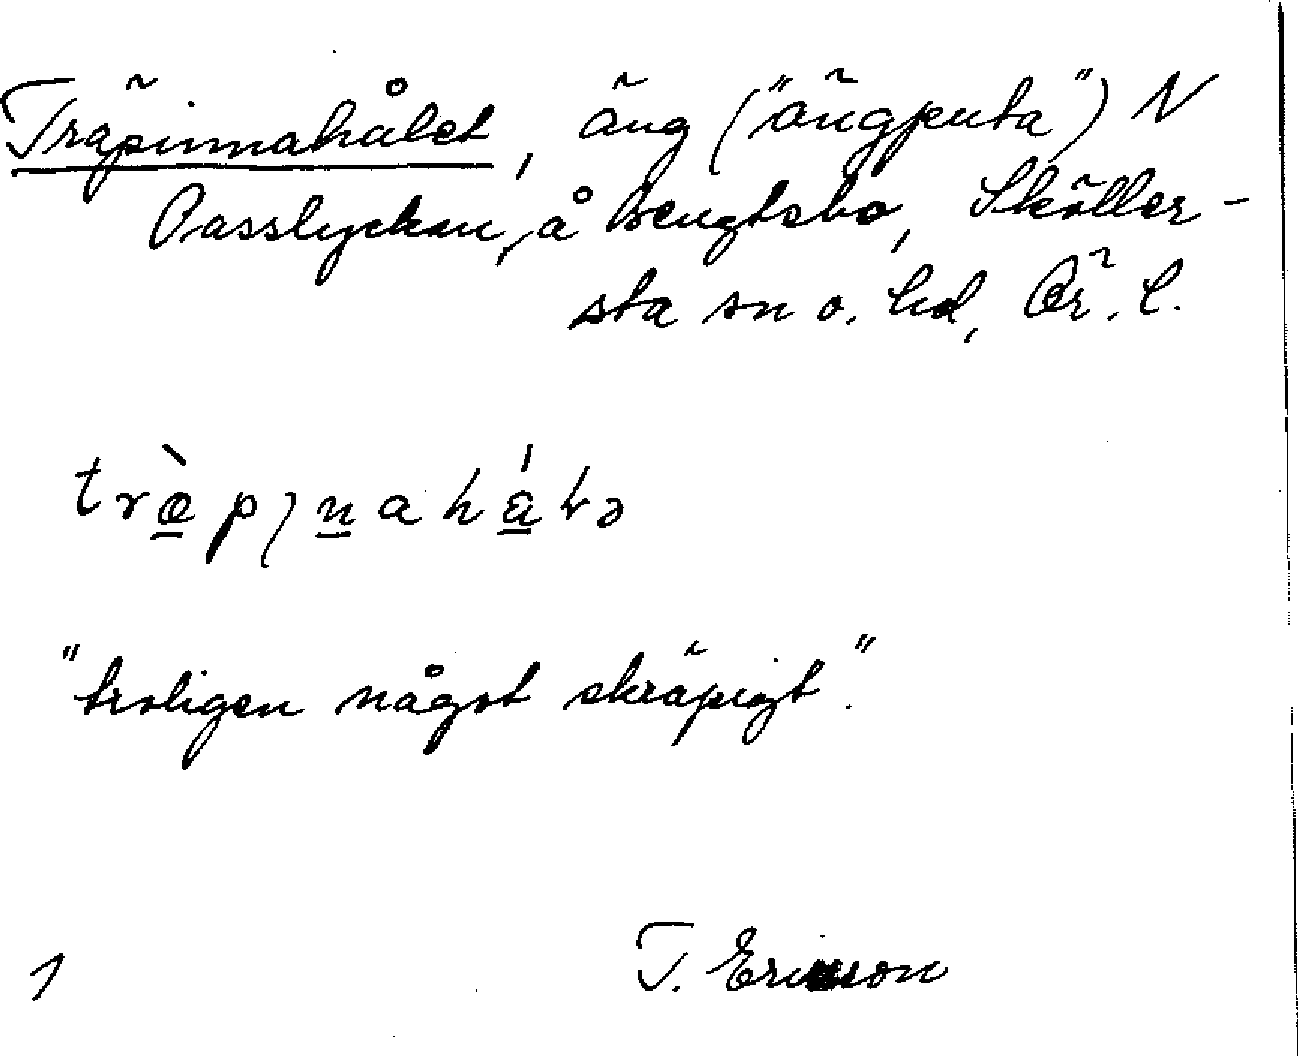 Träpinnahålet, äng ("ängputa") N
Passlyckan, å Bengtsbo, Sköller-
sta sn o. hd, Ör. l.
"troligen något skräpigt".
1 T. Ericson